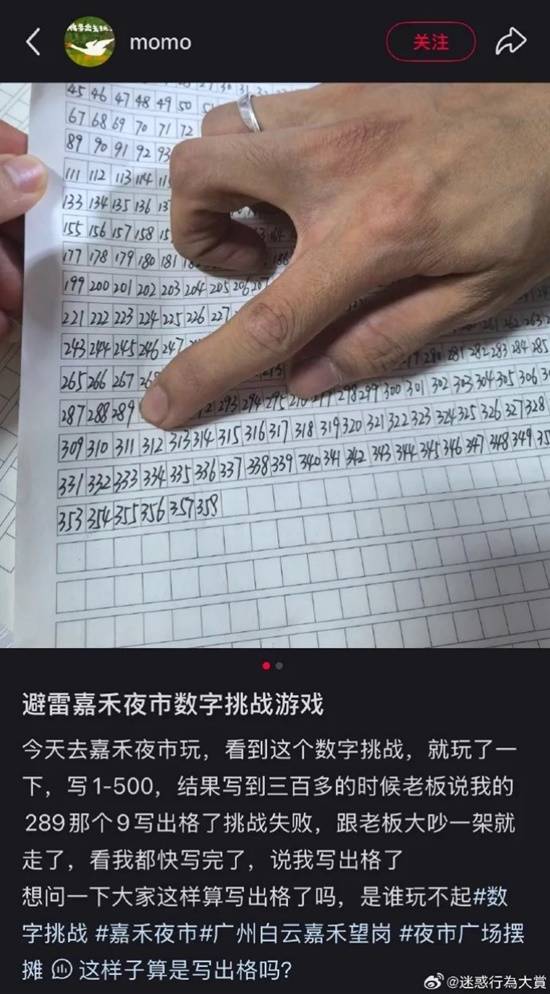 momo
关注
45 46 47 48 49 50
67 68 69 70 71 72
89 90 91 92 93
111 112 113 114
133 134 135 136
155 156 157 158
177 178 179 180 181
199 200 201 202 203 204 205 206 207
221 222 223 224 225 226 227
243 244 245 246 247
265 266 267 281 282 283 284 285
287 288 289 293 294 295 298 299 300 301 302 303 304 305 306
309 310 311 312 313 314 315 316 317 318 319 320 321 322 323 324 325 326 327 328
331 332 333 334 335 336 337 338 339 340 341 342 343 344 345 346 347 348 349
353 354 355 356 357 358
避雷嘉禾夜市数字挑战游戏
今天去嘉禾夜市玩，看到这个数字挑战，就玩了一
下，写1-500，结果写到三百多的时候老板说我的
289那个9写出格了挑战失败，跟老板大吵一架就
走了，看我都快写完了，说我写出格了
想问一下大家这样算写出格了吗，是谁玩不起#数
字挑战 #嘉禾夜市#广州白云嘉禾望岗 #夜市广场摆
摊 这样子算是写出格吗?
@迷惑行為大賞